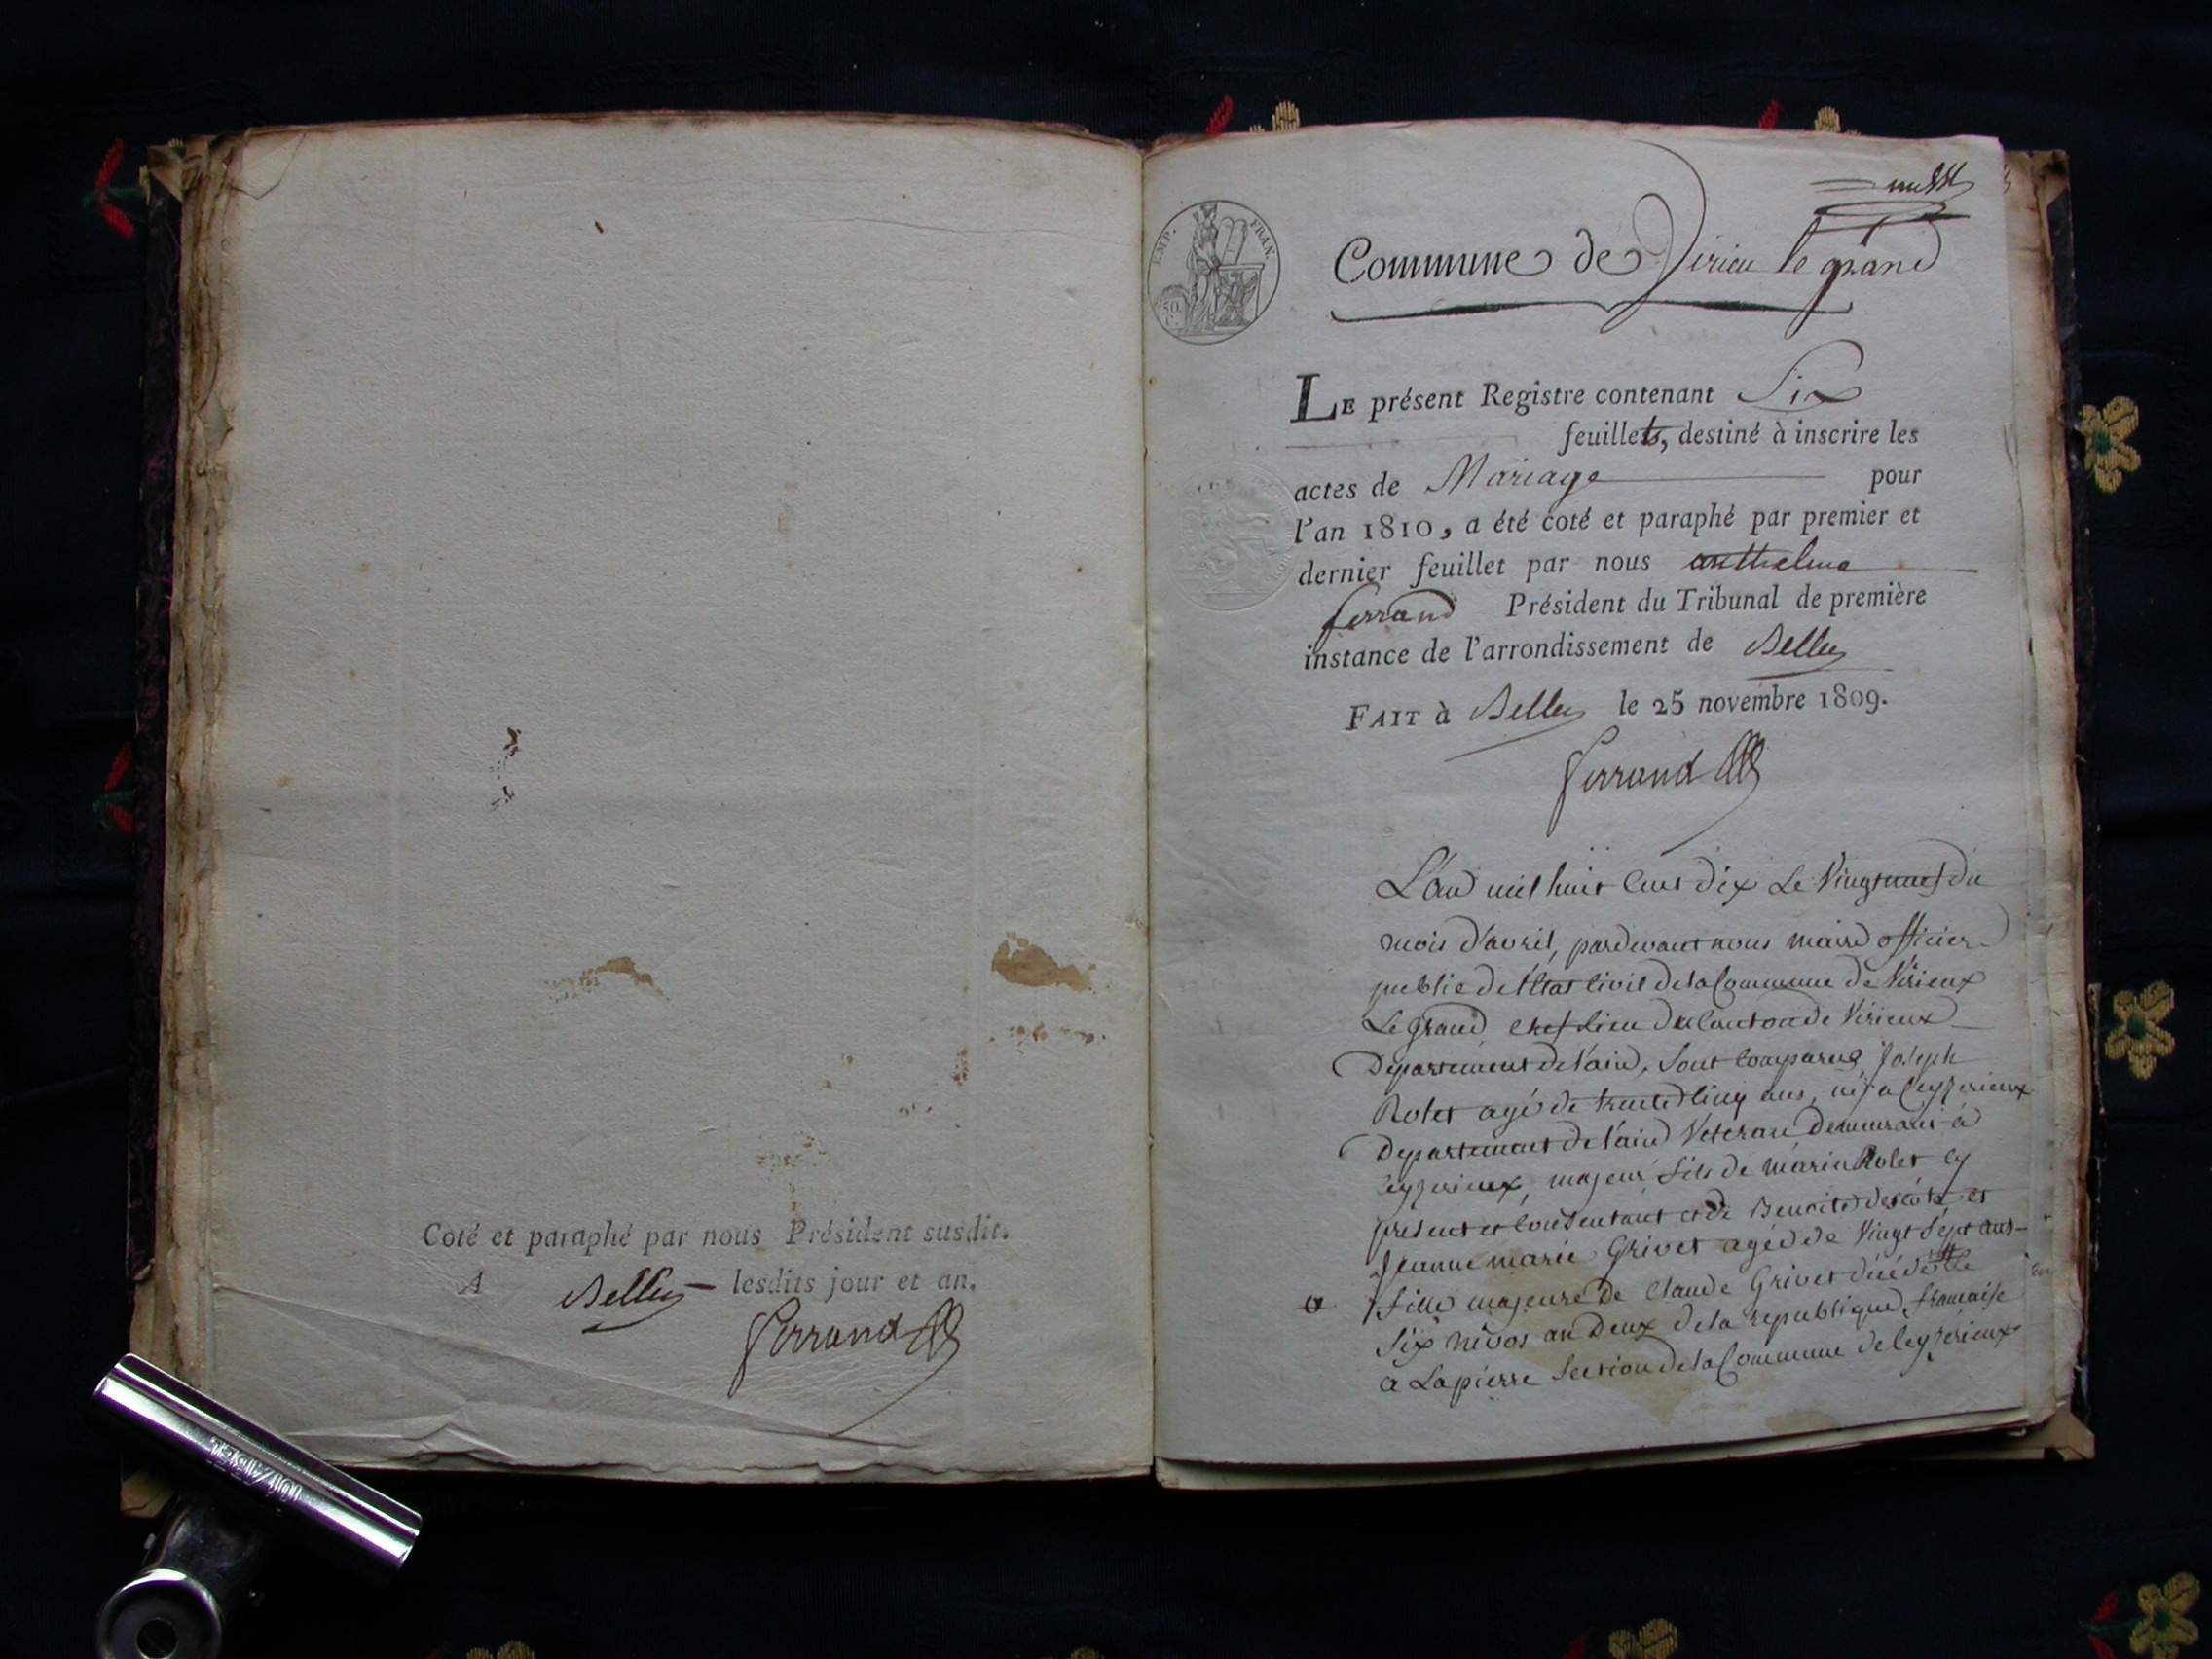 Coté et paraphé par nous Président susdit.
A Belley lesdits jour et an.
Ferrand
EMP. FRAN.
50
Commune de Virieu le grand
LE présent Registre contenant Six
feuillets, destiné à inscrire les
actes de Mariage pour
l'an 1810, a été coté et paraphé par premier et
dernier feuillet par nous anthelme
ferrand Président du Tribunal de première
instance de l'arrondissement de Belley
FAIT à Belley le 25 novembre 1809.
Ferrand
L'an mil huit Cent dix Le Vingt neuf du
mois d'avril, pardevant nous maire officier
public de l'Etat Civil de la Commune de Virieux
Le grand chef Lieu du Canton de Virieux
Département de l'ain, sont comparus Joseph
Rolet agé de trente Cinq ans, né a Ceyzerieux
Departement de l'ain Véteran Demeurant à
Ceyzerieux, majeur fils de marin Rolet Cy
present et Consentant et de Benoite et
Jeanne marie Grivet agée de Vingt Sept ans
fille majeure De Claude Grivet décédé Le
Six nivos an Deux de la republique francaise
a Lapierre Section de la Commune de Ceyzerieux